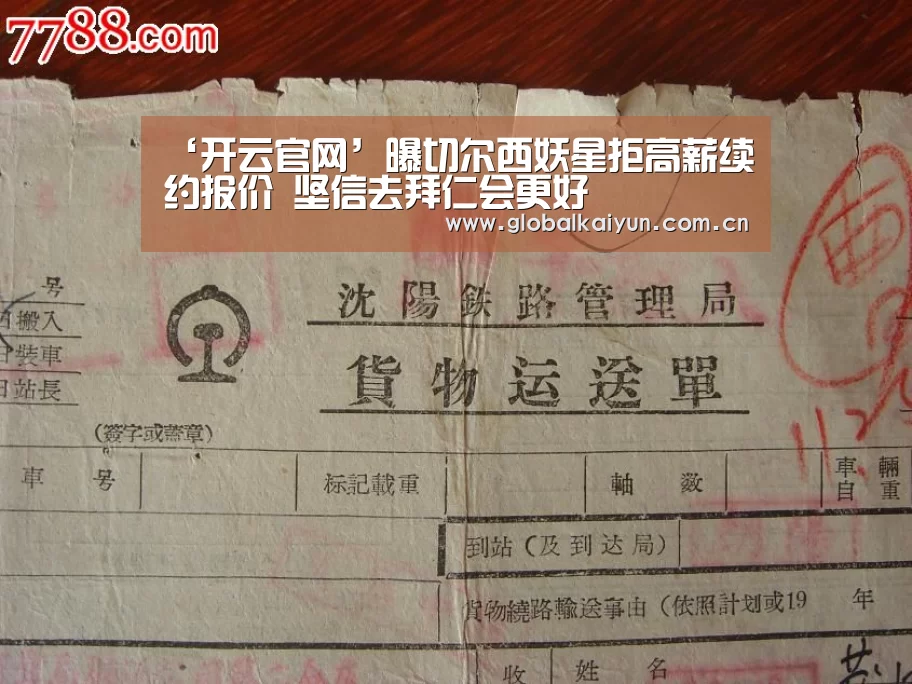 7788.com
‘开云官网’曝切尔西妖星拒高薪续
约报价 坚信去拜仁会更好
www.globalkaiyun.com.cn
号
日搬入
日装車
日站長
(簽字或蓋章)
沈陽鉄路管理局
貨物运送單
車 号
标記載重
軸 数
車 輛
自 重
到站(及到达局)
貨物繞路輸送事由(依照計划或19 年
收 姓 名
11.2